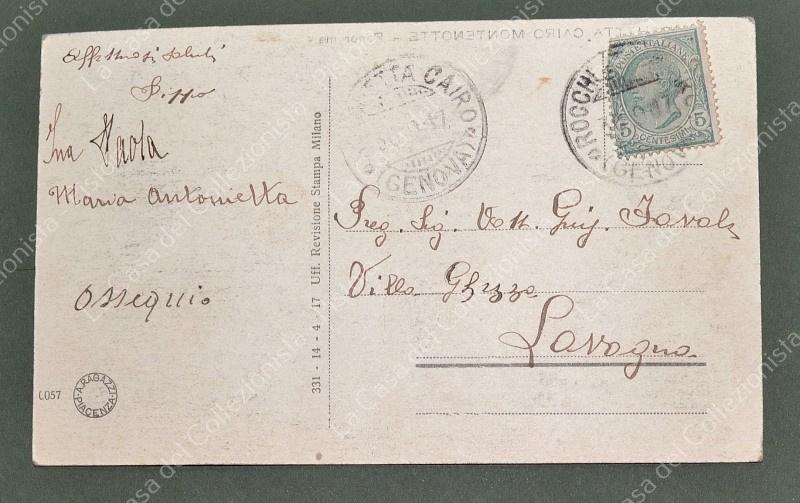 Affettuosi saluti
Pippo
Ina Paola
Maria Antonietta
Ossequio
C057
A. RAGAZZI
PIACENZA
331 - 14 - 4 - 17 Uff. Revisione Stampa Milano
CAIRO MONTENOTTE
ETTA CAIRO
(GENOVA)
ROCCHE
(GENOV
POSTE ITALIANE
5 CENTESIMI 5
Preg. Sig. Dott. Giu.
Villa Ghizzo
Lavagna
La Casa del Collezionista